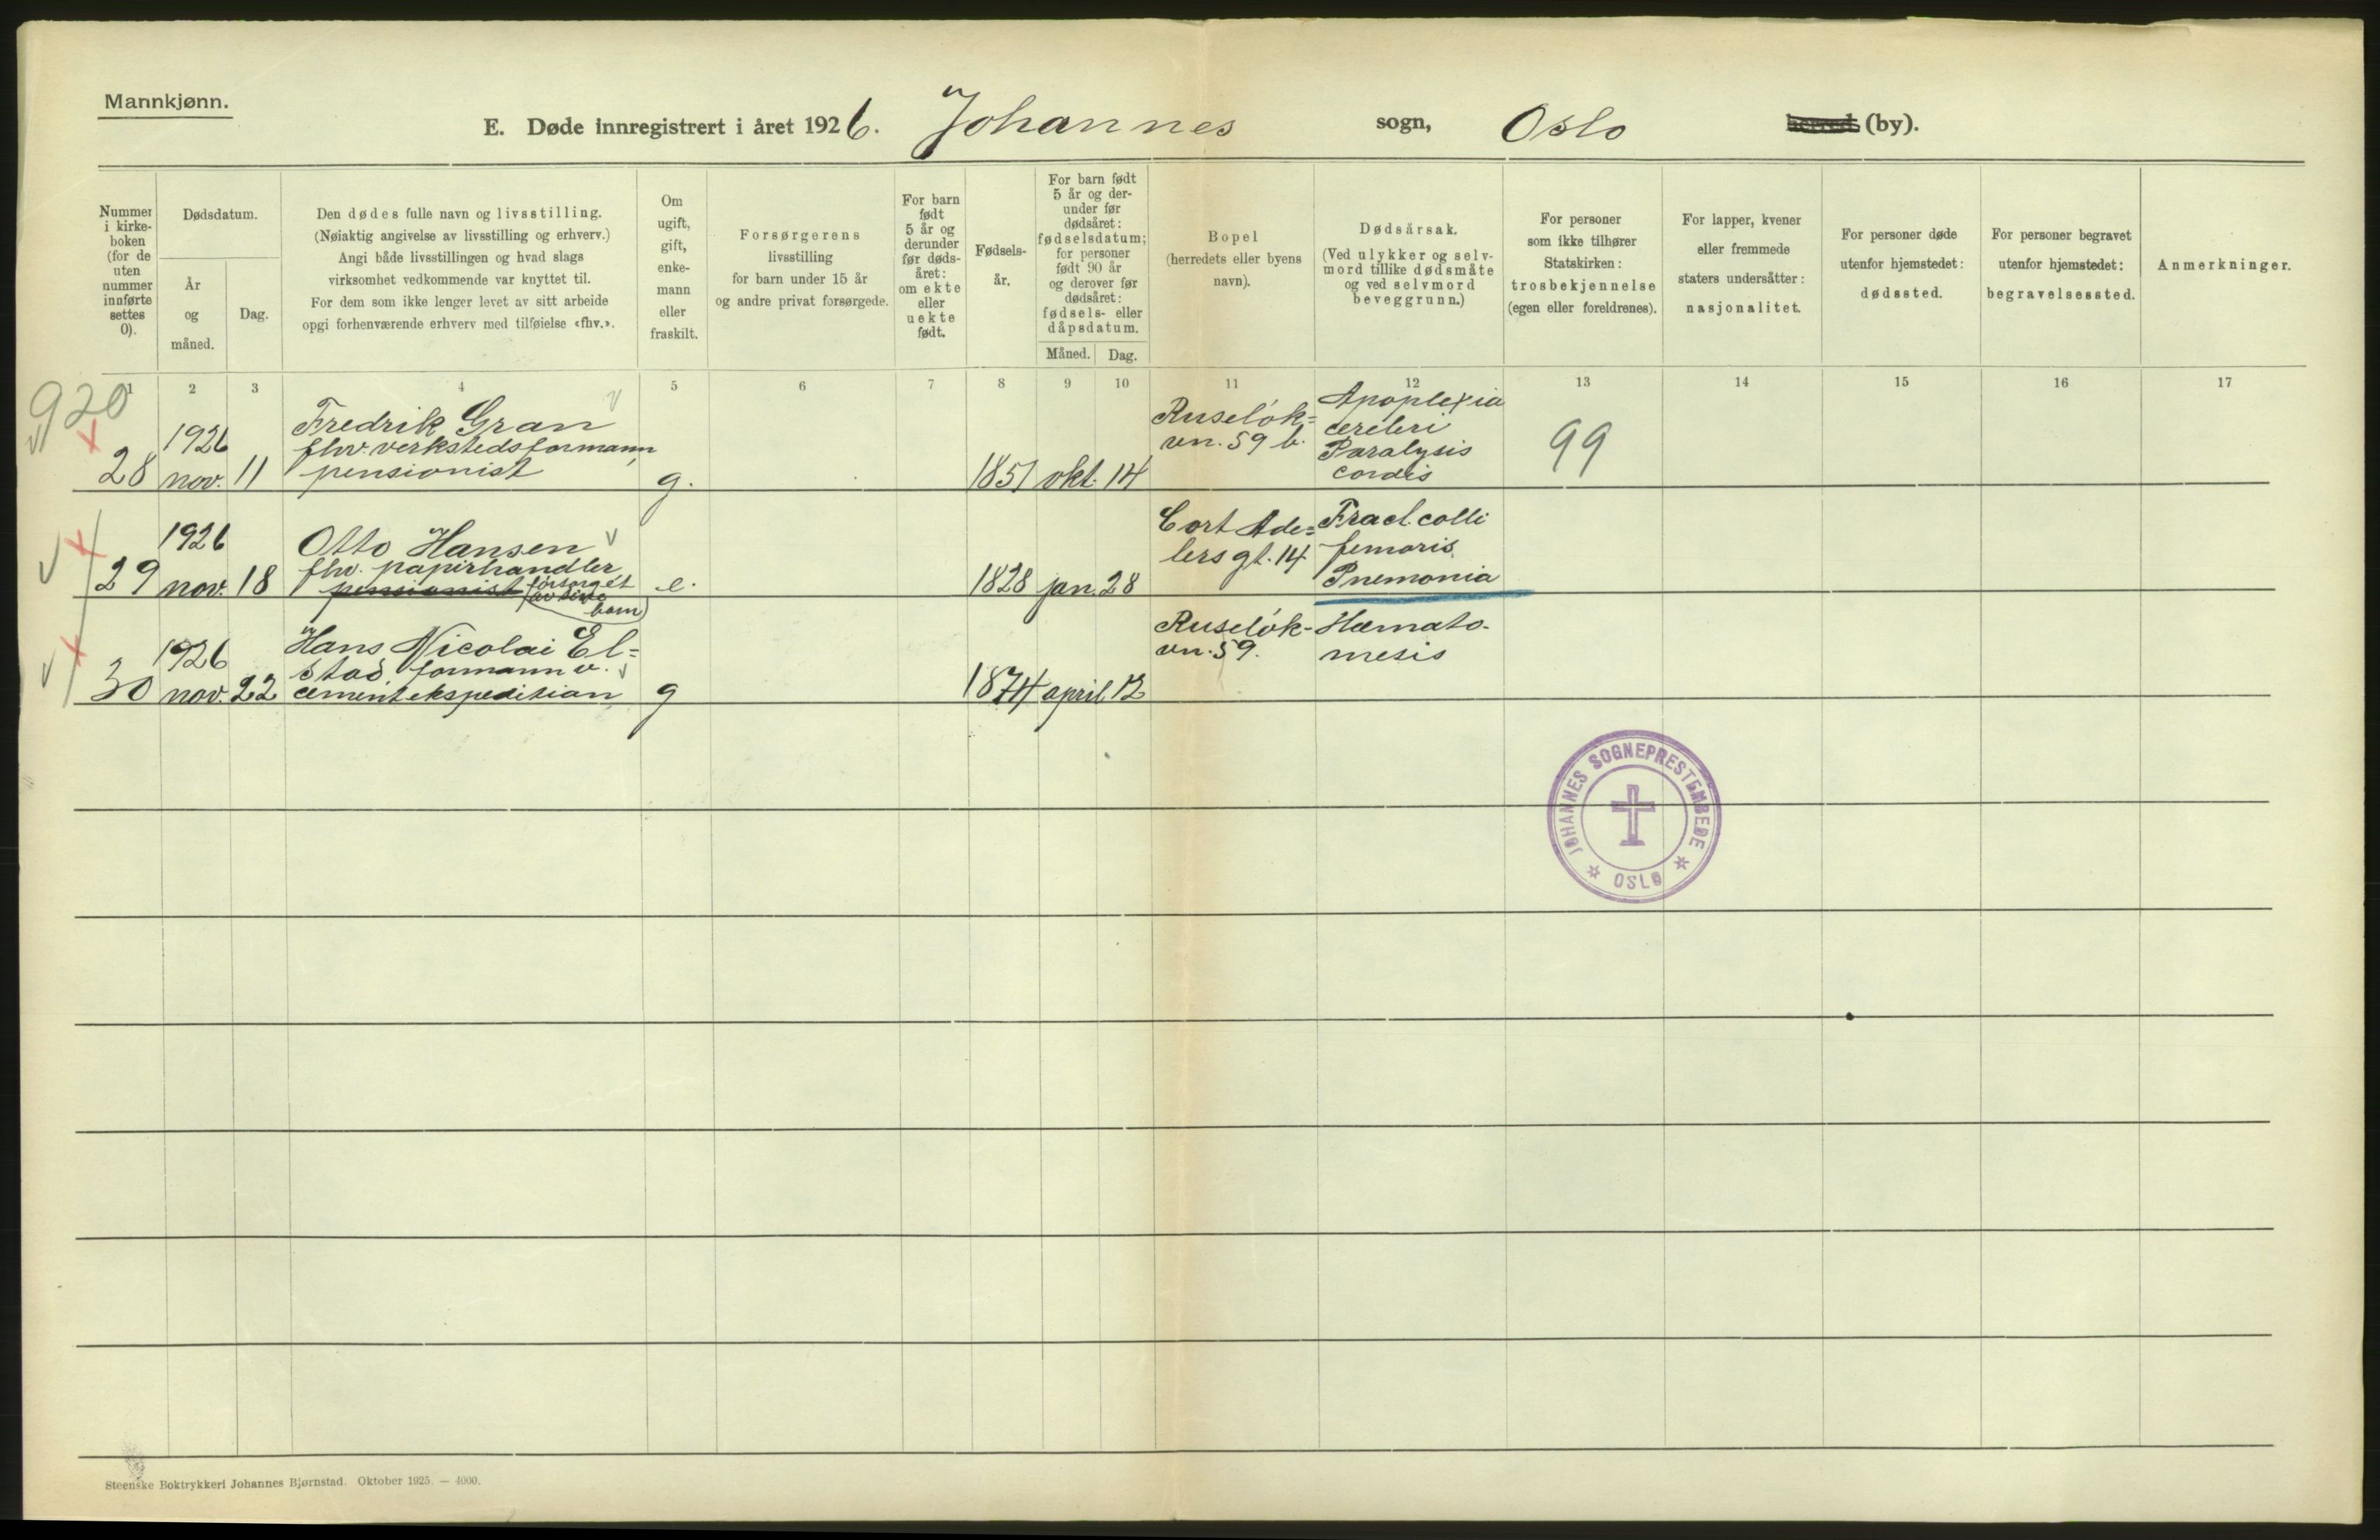 Mannkjønn.
E. Døde innregistrert i året 1926. Johannes sogn, Oslo herred (by).
Nummer i kirke-boken (for de uten nummer innførte settes 0).
Dødsdatum.
År og måned.
Dag.
Den dødes fulle navn og livsstilling.
(Nøiaktig angivelse av livsstilling og erhverv.)
Angi både livsstillingen og hvad slags
virksomhet vedkommende var knyttet til.
For dem som ikke lenger levet av sitt arbeide
opgi forhenværende erhverv med tilføielse «fhv.».
Om ugift, gift, enke-mann eller fraskilt.
Forsørgerens
livsstilling
for barn under 15 år
og andre privat forsørgede.
For barn født 5 år og derunder før døds-året: om ekte eller uekte født.
Fødsels-år.
For barn født 5 år og der-under før dødsåret: fødselsdatum; for personer født 90 år og derover før dødsåret: fødsels- eller dåpsdatum.
Måned. Dag.
Bopel
(herredets eller byens
navn).
Dødsårsak.
(Ved ulykker og selv-
mord tillike dødsmåte
og ved selvmord
beveggrunn.)
For personer
som ikke tilhører
Statskirken:
trosbekjennelse
(egen eller foreldrenes).
For lapper, kvener
eller fremmede
staters undersåtter:
nasjonalitet.
For personer døde
utenfor hjemstedet:
dødssted.
For personer begravet
utenfor hjemstedet:
begravelsessted.
Anmerkninger.
1 2 3 4 5 6 7 8 9 10 11 12 13 14 15 16 17
920
28 1926 nov. 11
Fredrik Gran
fhv. verkstedsformann,
pensionist
g.
1851 okt. 14
Ruseløk=
vn. 59 b.
Apoplexia
cerebri
Paralysis
cordis
99
29 1926 nov. 18
Otto Hansen
fhv. papirhandler
pensionist (forsørget
av sine
barn)
e.
1828 jan. 28
Cort Ade=
lers gt. 14
Fract. colli
femoris.
Pnemonia
30 1926 nov. 22
Hans Nicolai El=
stad, formann v.
cementekspedition
g
1874 april 12
Ruseløk-
vn. 59.
Hæmato-
mesis
JOHANNES SOGNEPRESTEMBEDE
OSLO
Steenske Boktrykkeri Johannes Bjørnstad. Oktober 1925. — 4000.